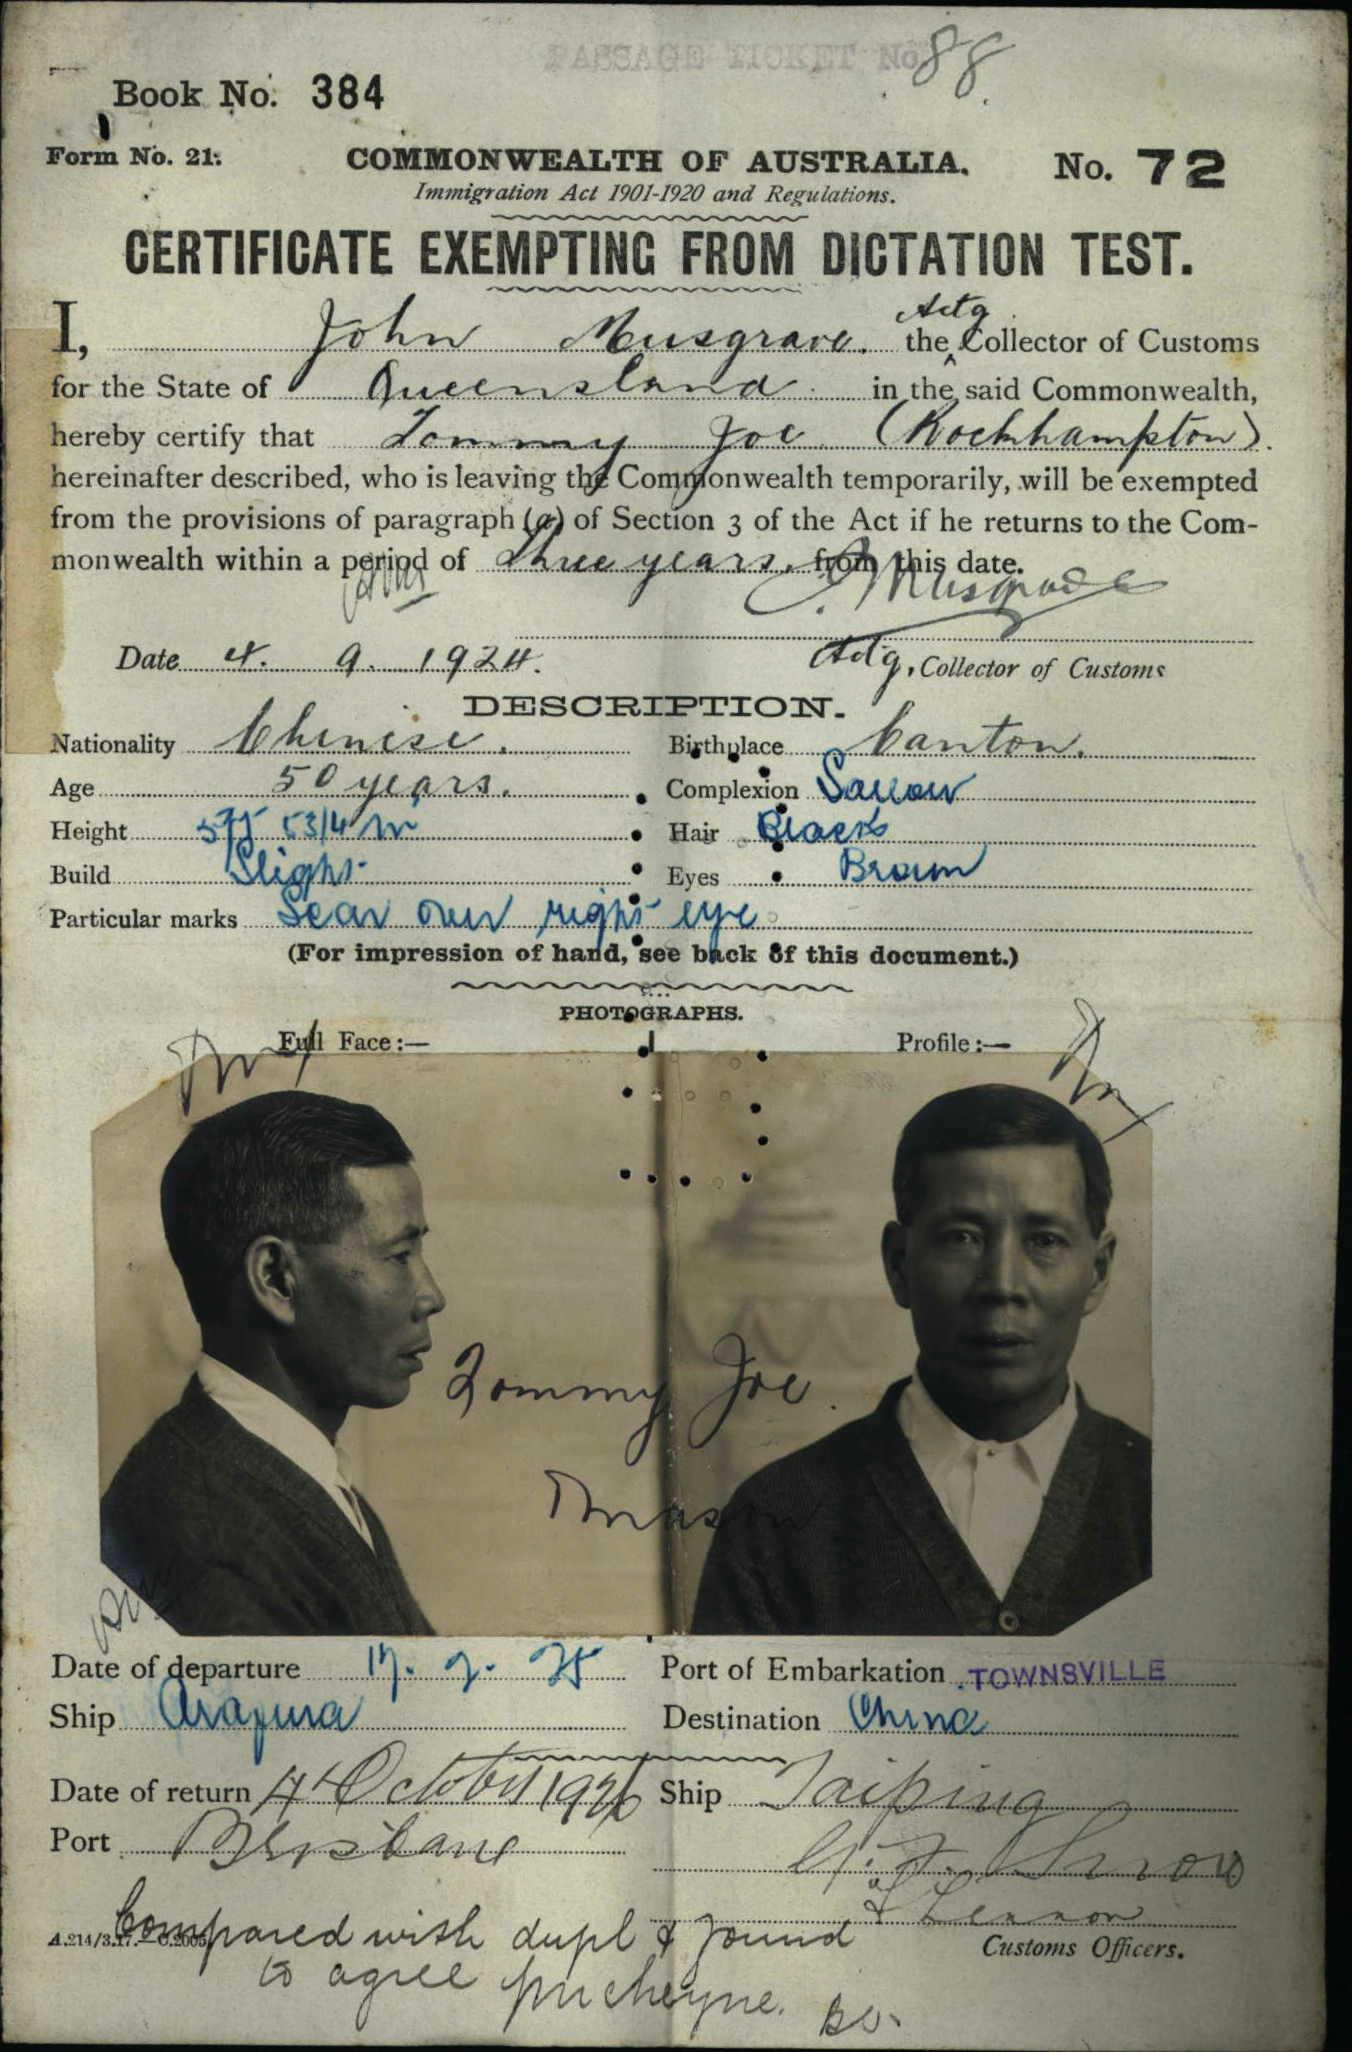 PASSAGE TICKET No 88
Book No. 384
Form No. 21.
COMMONWEALTH OF AUSTRALIA. No. 72
Immigration Act 1901-1920 and Regulations.
CERTIFICATE EXEMPTING FROM DICTATION TEST.
I, John Musgrave. the Actg Collector of Customs
for the State of Queensland in the said Commonwealth,
hereby certify that Tommy Joe (Rockhampton).
hereinafter described, who is leaving the Commonwealth temporarily, will be exempted
from the provisions of paragraph (a) of Section 3 of the Act if he returns to the Com-
monwealth within a period of three years. from this date.
J. Musgrave
Date 4. 9. 1924. Actg. Collector of Customs
DESCRIPTION.
Nationality Chinese. Birthplace Canton.
Age 50 years. Complexion Sallow
Height 5ft 5 3/4 in Hair Black
Build Slight Eyes Brown
Particular marks Scar over right eye
(For impression of hand, see back of this document.)
PHOTOGRAPHS.
Full Face:— Profile:—
Tommy Joe.
Date of departure 17. 2. 25 Port of Embarkation TOWNSVILLE
Ship Arafura Destination China
Date of return 4 October 1926 Ship Taiping
Port Brisbane
Lennon
Customs Officers.
Compared with dupl & found
to agree